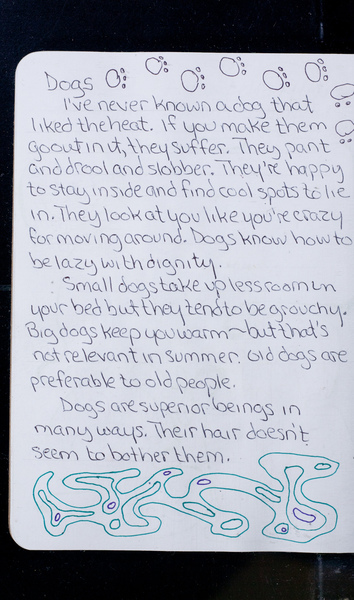 Dogs
I've never known a dog that
liked the heat. If you make them
go out in it, they suffer. They pant
and drool and slobber. They're happy
to stay inside and find cool spots to lie
in. They look at you like you're crazy
for moving around. Dogs know how to
be lazy with dignity.
Small dogs take up less room in
your bed but they tend to be grouchy.
Big dogs keep you warm~but that's
not relevant in summer. Old dogs are
preferable to old people.
Dogs are superior beings in
many ways. Their hair doesn't
seem to bother them.